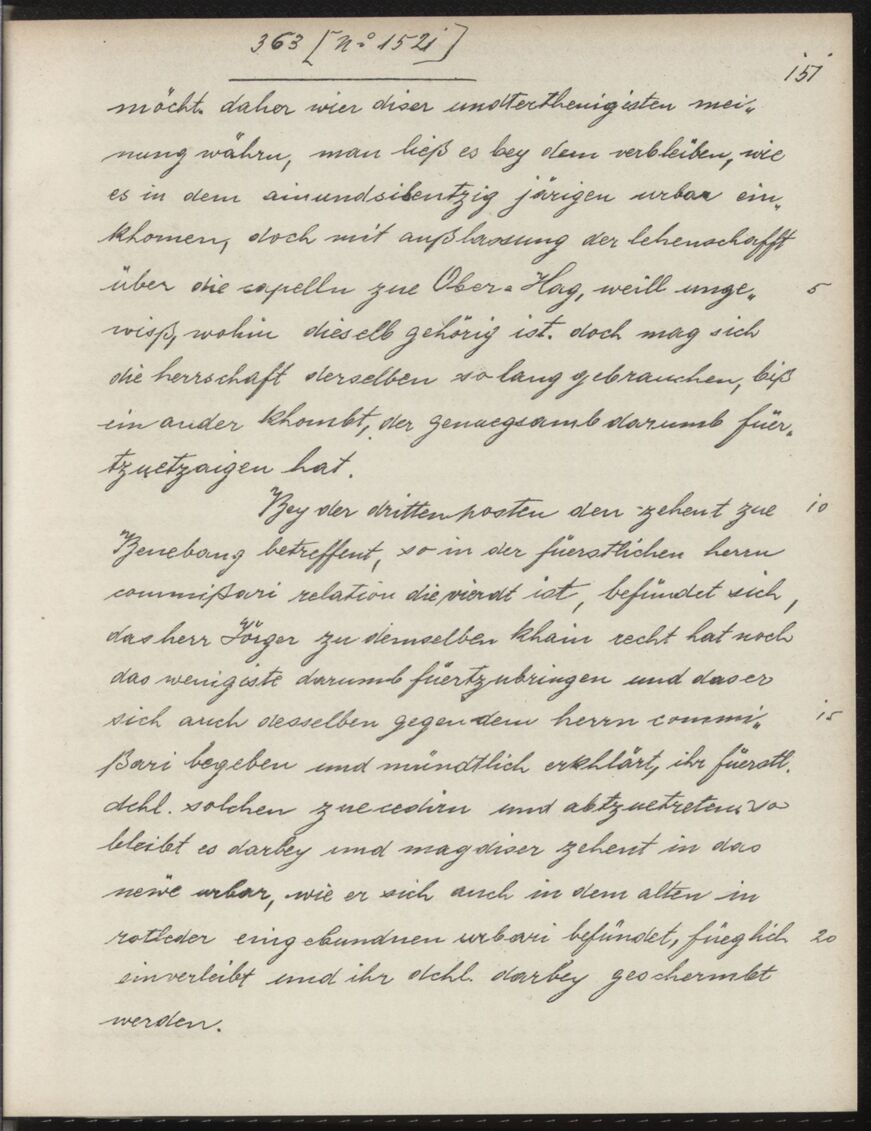 363 [No 152i]
151
möcht. daher wier diser undterthenigisten mei„
nung währn, man ließ es bey dem verbleiben, wie
es in dem ainundsibentzig järigen urbar ein„
khomen, doch mit außlassung der lehenschafft
über die capelln zue Ober-Hag, weill unge„ 5
wiß, wohin dieselb gehörig ist. doch mag sich
die herrschaft derselben so lang gebrauchen, biß
ein ander khombt, der genuegsamb darumb füer„
tzuetzaigen hat.
Bey der dritten posten den zehent zue 10
Benebang betreffent, so in der füerstlichen herrn
commißari relation die vierdt ist, befündet sich,
das herr Jörger zu demselben khain recht hat noch
das wenigiste darumb füertzubringen und das er
sich auch desselben gegen dem herrn commi„ 15
ßari begeben und mündtlich erkhlärt, ihr füerstl.
dchl. solchen zue cedirn und abtzuetreten. so
bleibt es darbey und mag diser zehent in das
newe urbar, wie er sich auch in dem alten in
rotleder eingebundnen urbari befündet, füeglich 20
einverleibt und ihr dchl. darbey geschermbt
werden.